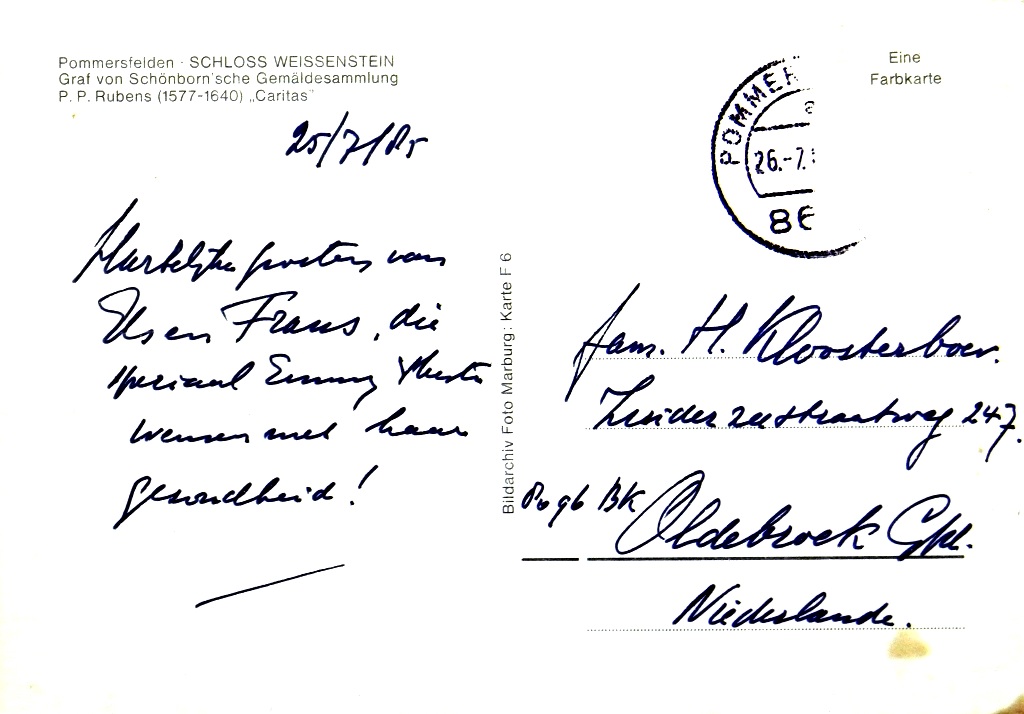 Pommersfelden · SCHLOSS WEISSENSTEIN
Graf von Schönborn'sche Gemäldesammlung
P. P. Rubens (1577-1640) „Caritas"
25/7/85
Hartelijke groeten van
Els en Frans, die
speciaal Emmy sterkte
wensen met haar
gezondheid!
Bildarchiv Foto Marburg: Karte F 6
Eine
Farbkarte
POMMER
a
26.-7.
86
fam. H. Kloosterboer.
Zuiderzeestraatweg 247.
8096 BK Oldebroek Gld.
Niederlande.